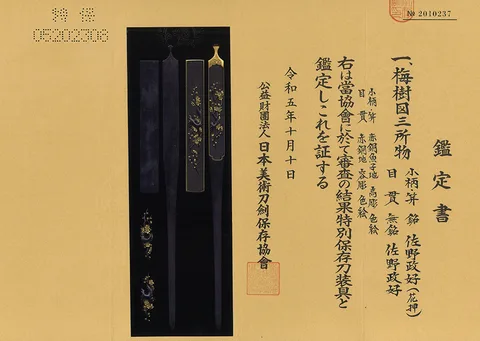 特保
05202306
№ 2010237
鑑定書
一、梅樹図三所物
小柄・笄 銘 佐野政好(花押)
目貫 無銘 佐野政好
小柄・笄 赤銅魚子地 高彫 色絵
目貫 赤銅地 容彫 色絵
右は當協會に於て審査の結果特別保存刀装具と
鑑定しこれを証する
令和五年十月十日
公益財團法人 日本美術刀劍保存協會